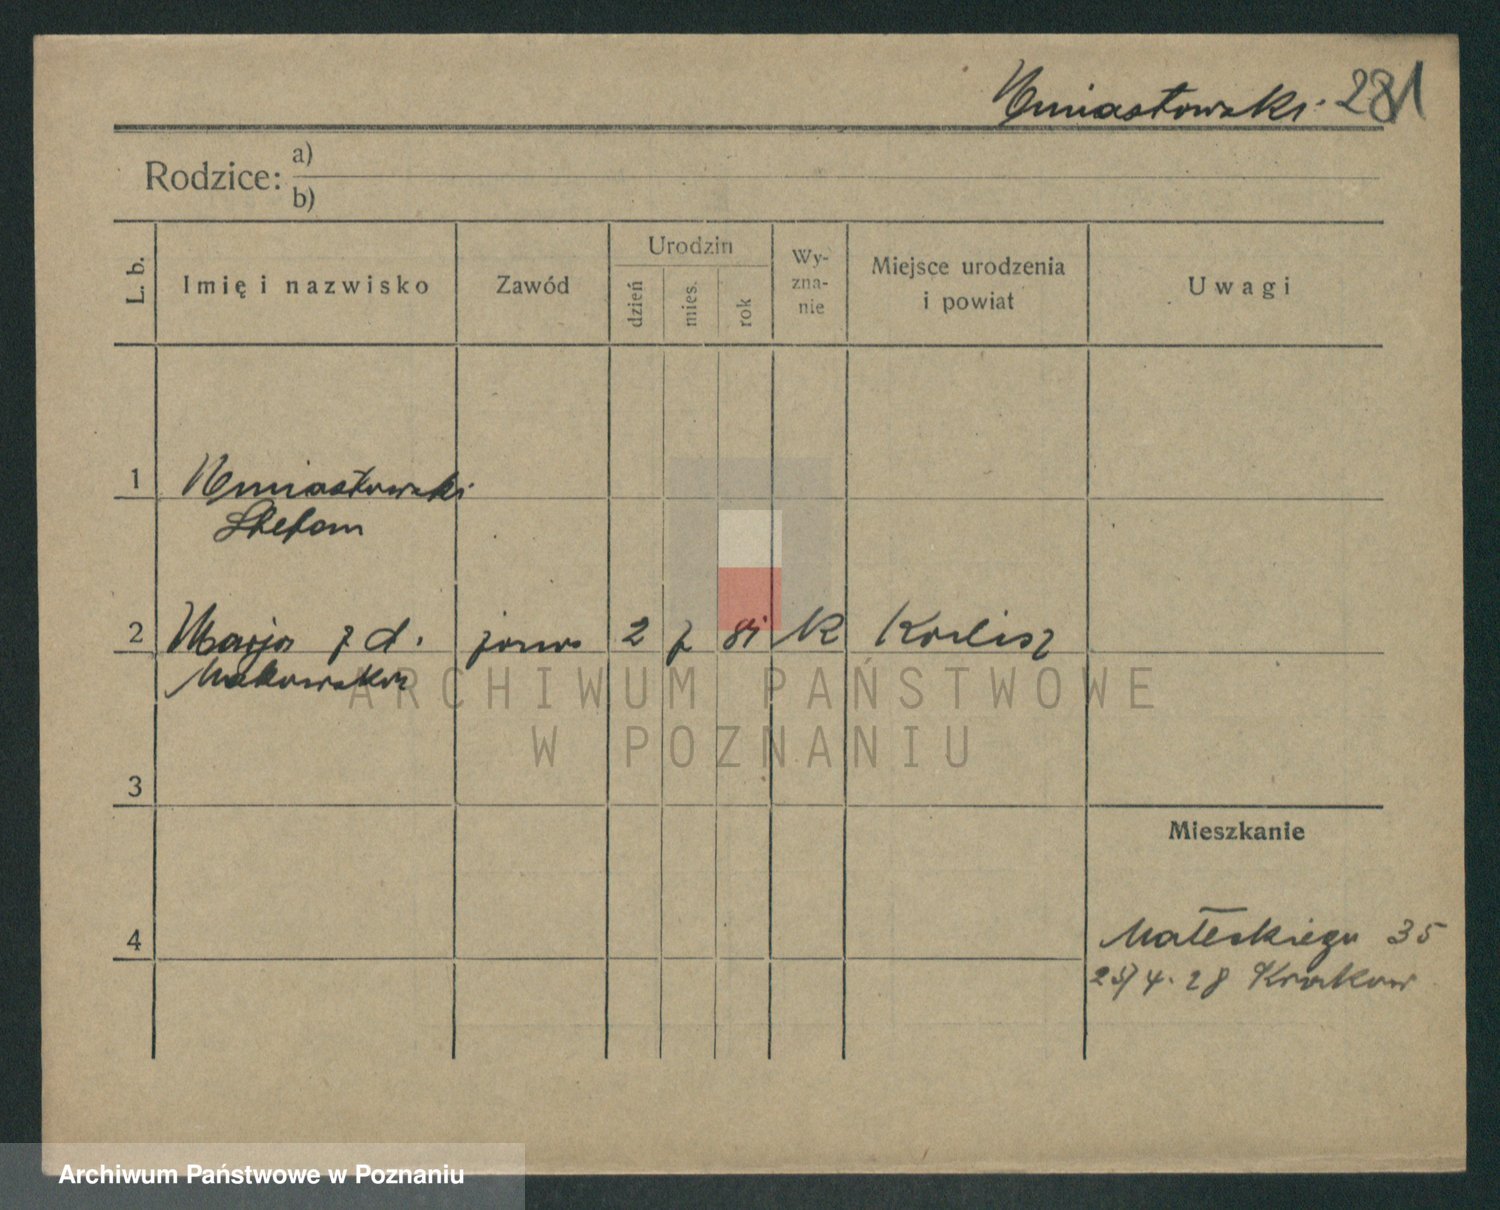 Umiastowski 281
Rodzice: a)
b)
L. b.
Imię i nazwisko
Zawód
Urodzin
dzień
mies.
rok
Wy-
zna-
nie
Miejsce urodzenia
i powiat
Uwagi
1 Umiastowski
Stefan
2 Marja z d. żona 2 7 81 K Kalisz
Makowska
3
Mieszkanie
4
Małeckiego 35
25/4. 28 Krakow
ARCHIWUM PAŃSTWOWE
W POZNANIU
Archiwum Państwowe w Poznaniu